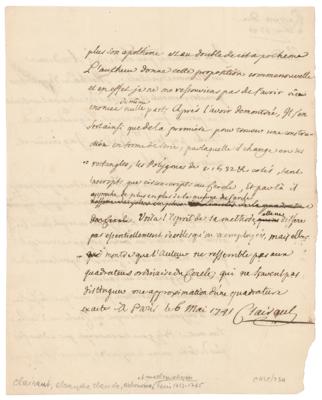 plus son apothême est au double de cet apothême
L'autheur donne cette proposition comme nouvelle
et en effet je ne me ressouviens pas de l'avoir vue
énoncée nulle part. Après l'avoir demontrée, Il s'en
sert ainsi que de la première pour trouver une construc-
tion en forme de serie, par laquelle il change en des
rectangles, les Polygones de 8, 16, 32 &c cotés, tant
inscripts que circonscripts au Cercle, et par là il
approche de plus en plus de la
du Cercle. Voila l'esprit de sa methode, elle ne differe
pas essentiellement de celles qu'on a employées, mais elle
montre que l'Auteur ne ressemble pas aux
quadrateurs ordinaires du Cercle, qui ne sçavent pas
distinguer une approximation d'une quadrature
exacte. A Paris le 6 Mai 1741 Clairaut
Clairaut, Alexandre Claude, Paris 1713-1765